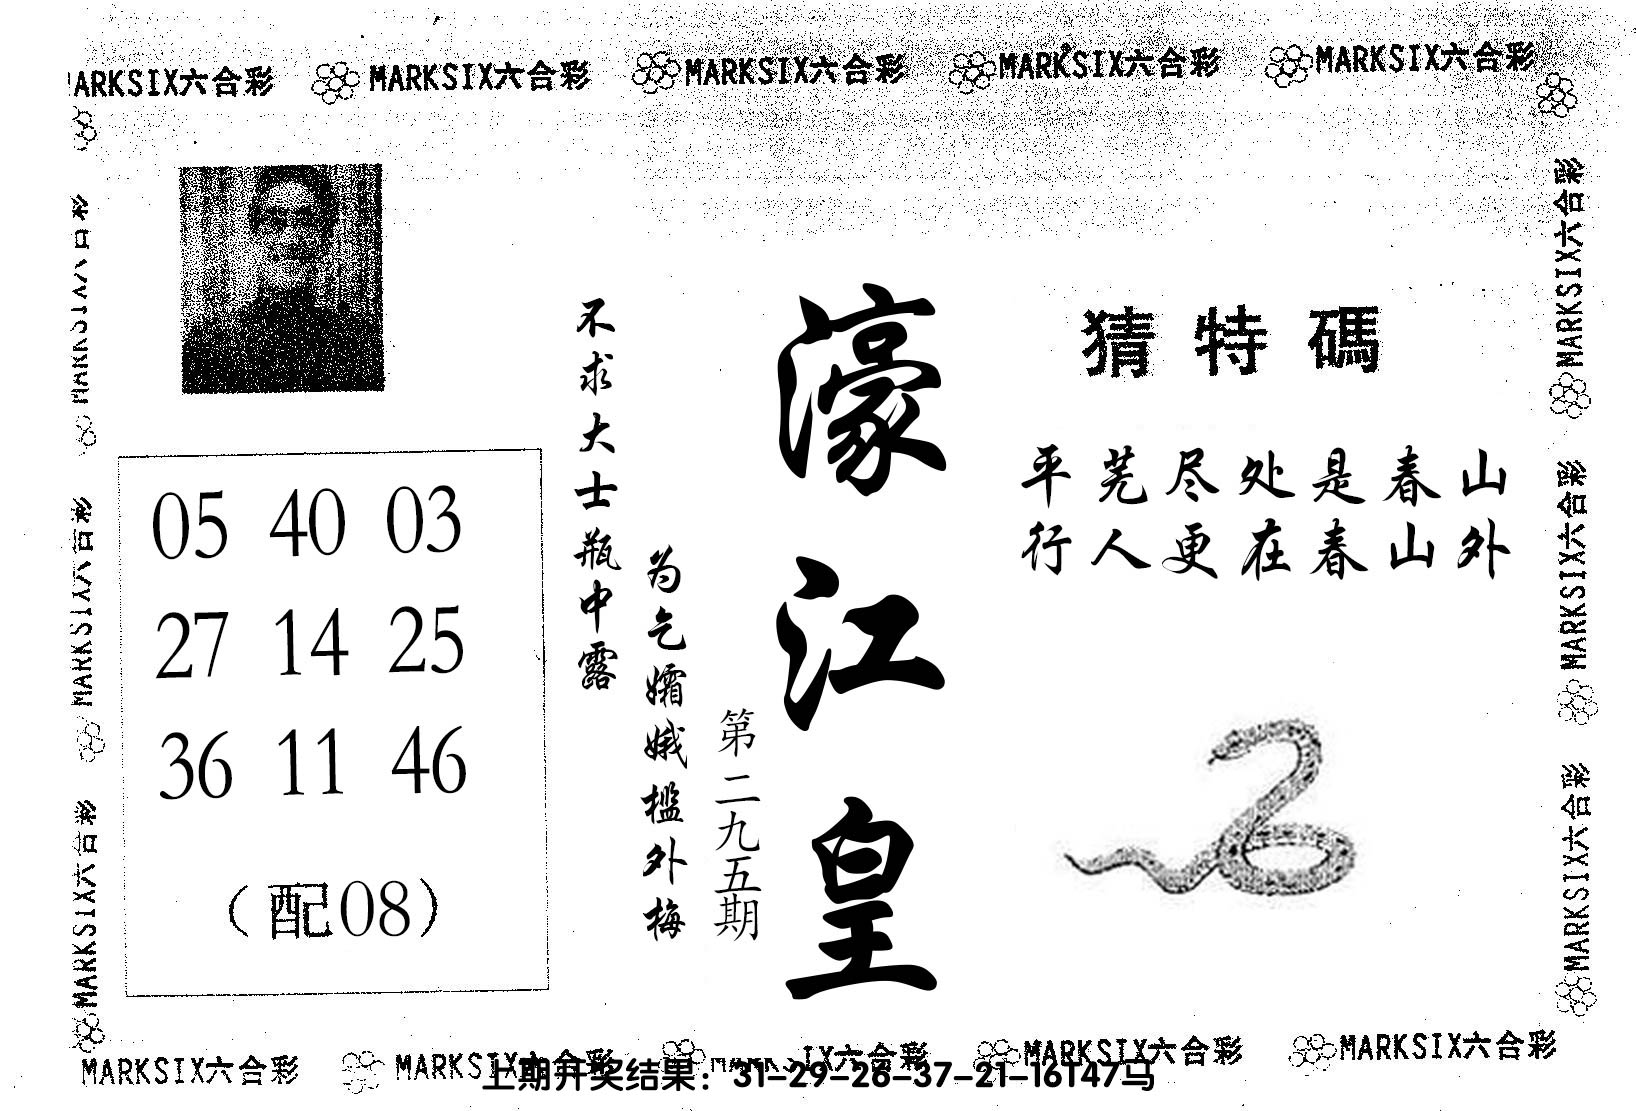 MARKSIX六合彩 MARKSIX六合彩 MARKSIX六合彩 MARKSIX六合彩 MARKSIX六合彩
濠江皇
猜特碼
平芜尽处是春山
行人更在春山外
不求大士瓶中露
为乞孀娥槛外梅
第二九五期
05 40 03
27 14 25
36 11 46
（配08）
MARKSIX六合彩
MARKSIX六合彩
MARKSIX六合彩
MARKSIX六合彩
MARKSIX六合彩
MARKSIX六合彩
MARKSIX六合彩 MARKSIX六合彩 MARKSIX六合彩 MARKSIX六合彩 MARKSIX六合彩
上期开奖结果：31-29-26-37-21-16T47马